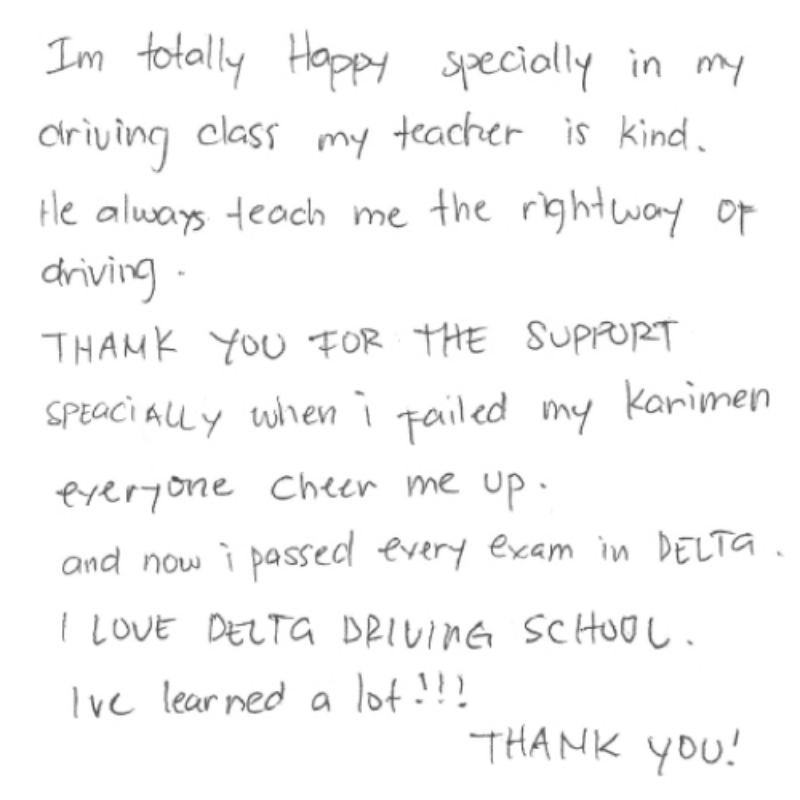 Im totally Happy specially in my
driving class my teacher is kind.
He always teach me the right way OF
driving.
THANK YOU FOR THE SUPPORT
SPEACIALLY when i failed my Karimen
everyone cheer me up.
and now i passed every exam in DELTA.
I LOVE DELTA DRIVING SCHOOL.
Ive learned a lot!!!
THANK YOU!